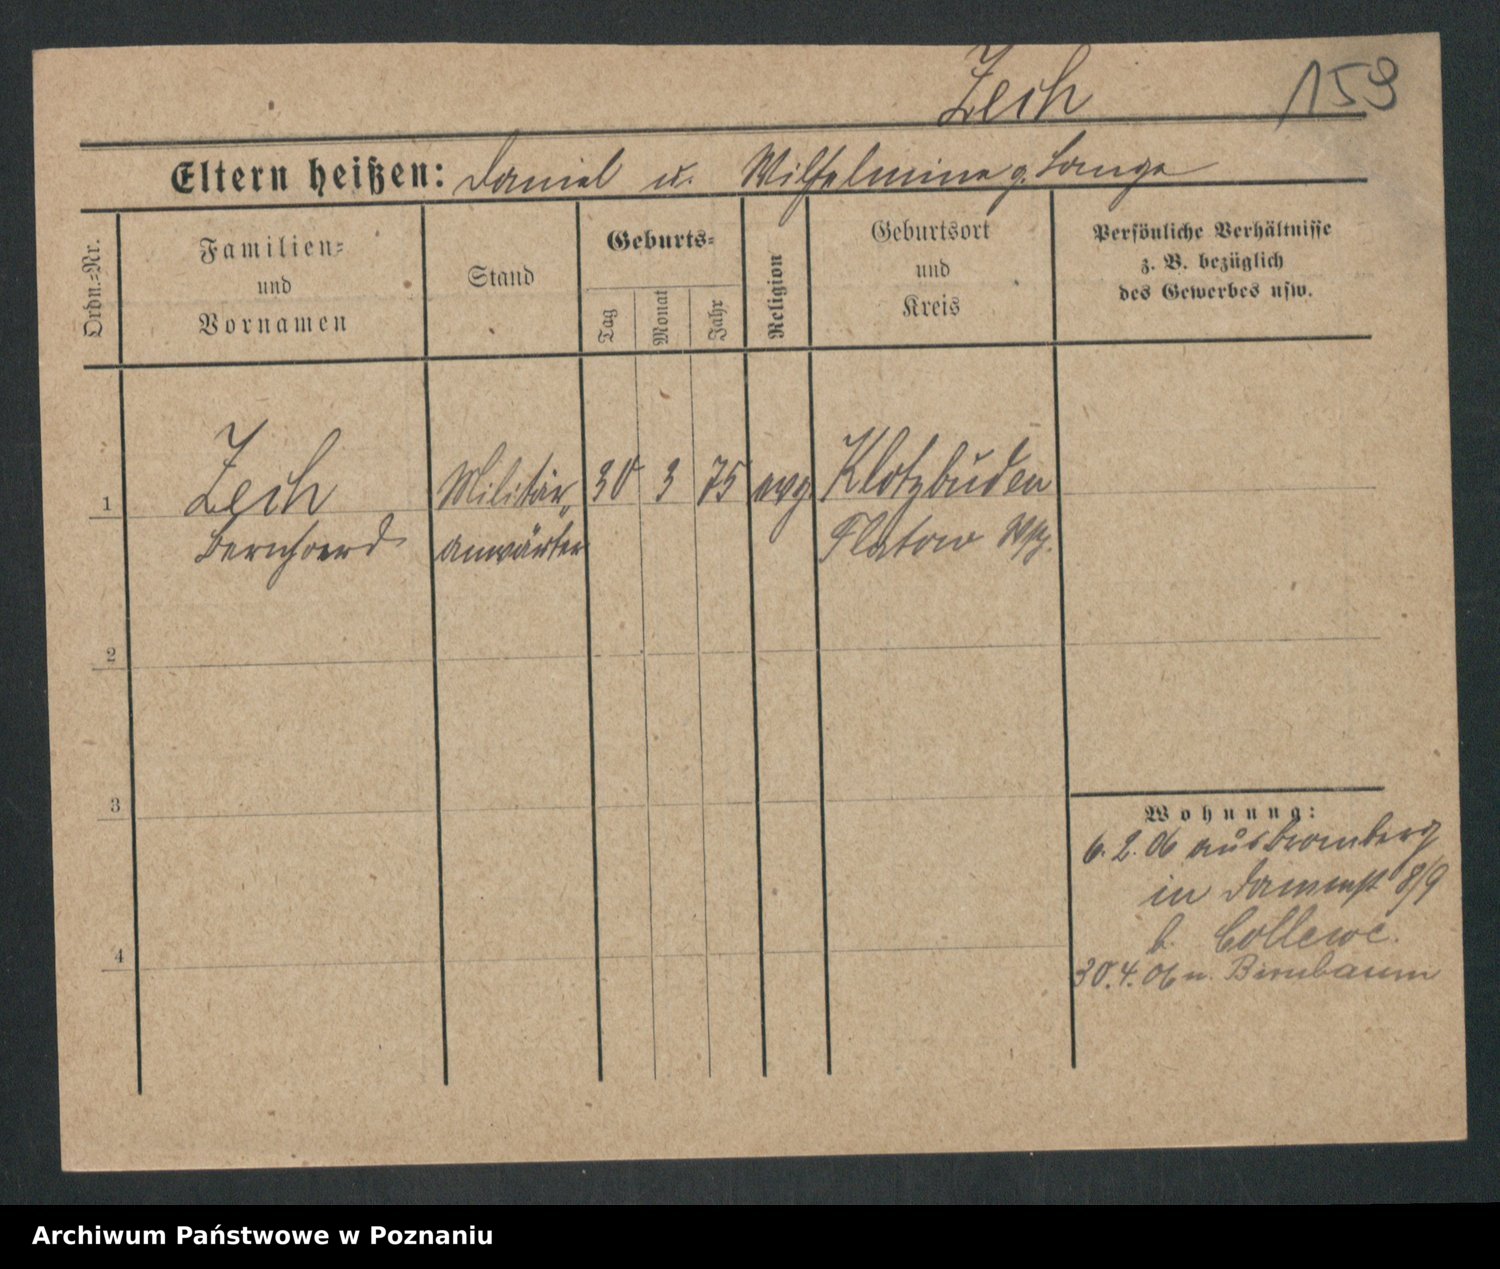 Zech 159
Eltern heißen: Daniel u. Wilhelmine g. Lange
Ordn.-Nr.
Familien-
und
Vornamen
Stand
Geburts-
Tag
Monat
Jahr
Religion
Geburtsort
und
Kreis
Persönliche Verhältnisse
z. B. bezüglich
des Gewerbes usw.
1 Zech Militär- 30 3 75 evg Klotzbuden
Bernhard anwärter Flatow Wpr.
2
3
4
Wohnung:
6.2.06 aus Bromberg
in Dammst 8/9
b. Collewe.
30.4.06 n. Birnbaum
Archiwum Państwowe w Poznaniu